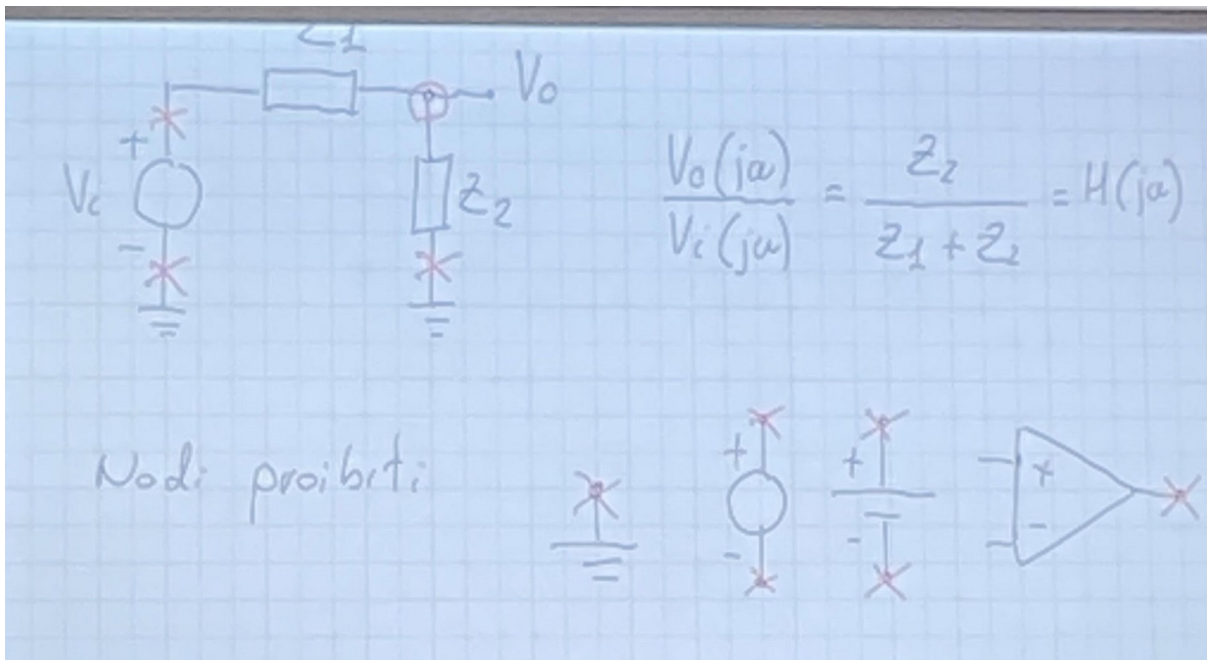 Z1
Vo
+
Vi
-
Z2
Vo(jω) / Vi(jω) = Z2 / Z1 + Z2 = H(jω)
Nodi proibiti
+
-
+
-
+
-